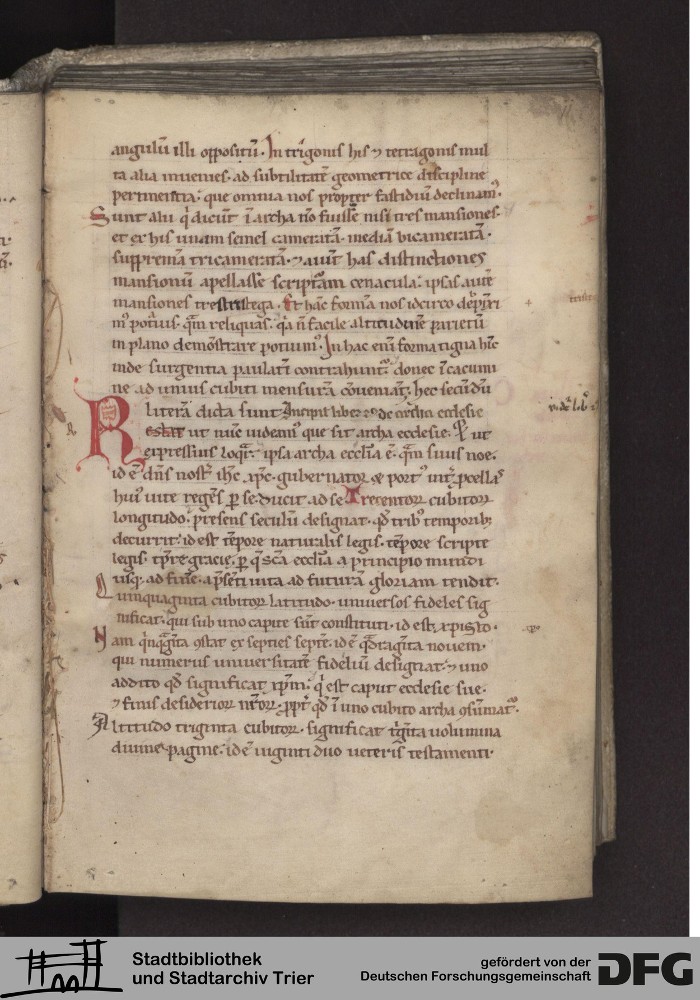 angulū illi oppositū. In trigonis his ⁊ tetragonis mul
ta alia inuenies. ad subtilitatē geometrice discipline
pertinentia. que omnia nos propter fastidiū declinam᷒.
Sunt alii q̇ dicūt ī archa nō fuisse nisi tres mansiones.
et ex his unam semel cameratā. mediā bicameratā.
supprema tricameratā. ⁊ aiūt has distinctiones
mansionū apellasse scripturam cenacula. ipsas autē
mansiones tristega. Et hanc formā nos idcirco
m᷒ poti᷒. quā reliquas. q̇a n̄ facile altitudinē parietū
in plano demōstrare potuim᷒. In hac enī forma tigna hīc
inde surgentia paulatī contrahunt᷑ donec ī cacumi
ne ad unius cubiti mensurā cōueniāt. hec secūdū
literā dicta sunt. Incipit liber de archa ecclesie
Restat ut nūc uideam᷒ que sit archa ecclesie. ut
expressius loq̇r. ipsa archa ecclīa ē. quā suus noe.
id ē dn̄s nost̄ ihc xpc. gubernator ⁊ port᷒ int᷑ pcellas
hui᷒ uite regēs p se ducit ad se. Trecentorꝝ cubitorꝝ
longitudo. presens seculū designat. qd trib᷒ temporibꝫ
decurrit. id est tēpore naturalis legis. tēpore scripte
legis. tp̄re gracię. p q̄ sc̄a ecclīa a principio mundi
usqꝫ ad finē. a p̄senti uita ad futurā gloriam tendit.
Quinquaginta cubitorꝝ latitudo. uniuersos fideles sig
nificat. qui sub uno capite sūt constituti. id est xpisto.
Nam q̇nq̇gīta 9stat ex septies septē. id ē q̄dragīta nouem.
qui numerus uniuersitatē fideliū designat. ⁊ uno
addito qd significat xpm̄. q̇ est caput ecclesie sue.
⁊ finis desideriorꝝ nr̄orꝝ. ppt̄ qd ī uno cubito archa 9sūmat᷑.
Altitudo triginta cubitorꝝ. significat t̄gīta uolumina
diuine pagine. id ē uiginti duo ueteris testamenti.
Stadtbibliothek
und Stadtarchiv Trier
gefördert von der
Deutschen Forschungsgemeinschaft
DFG